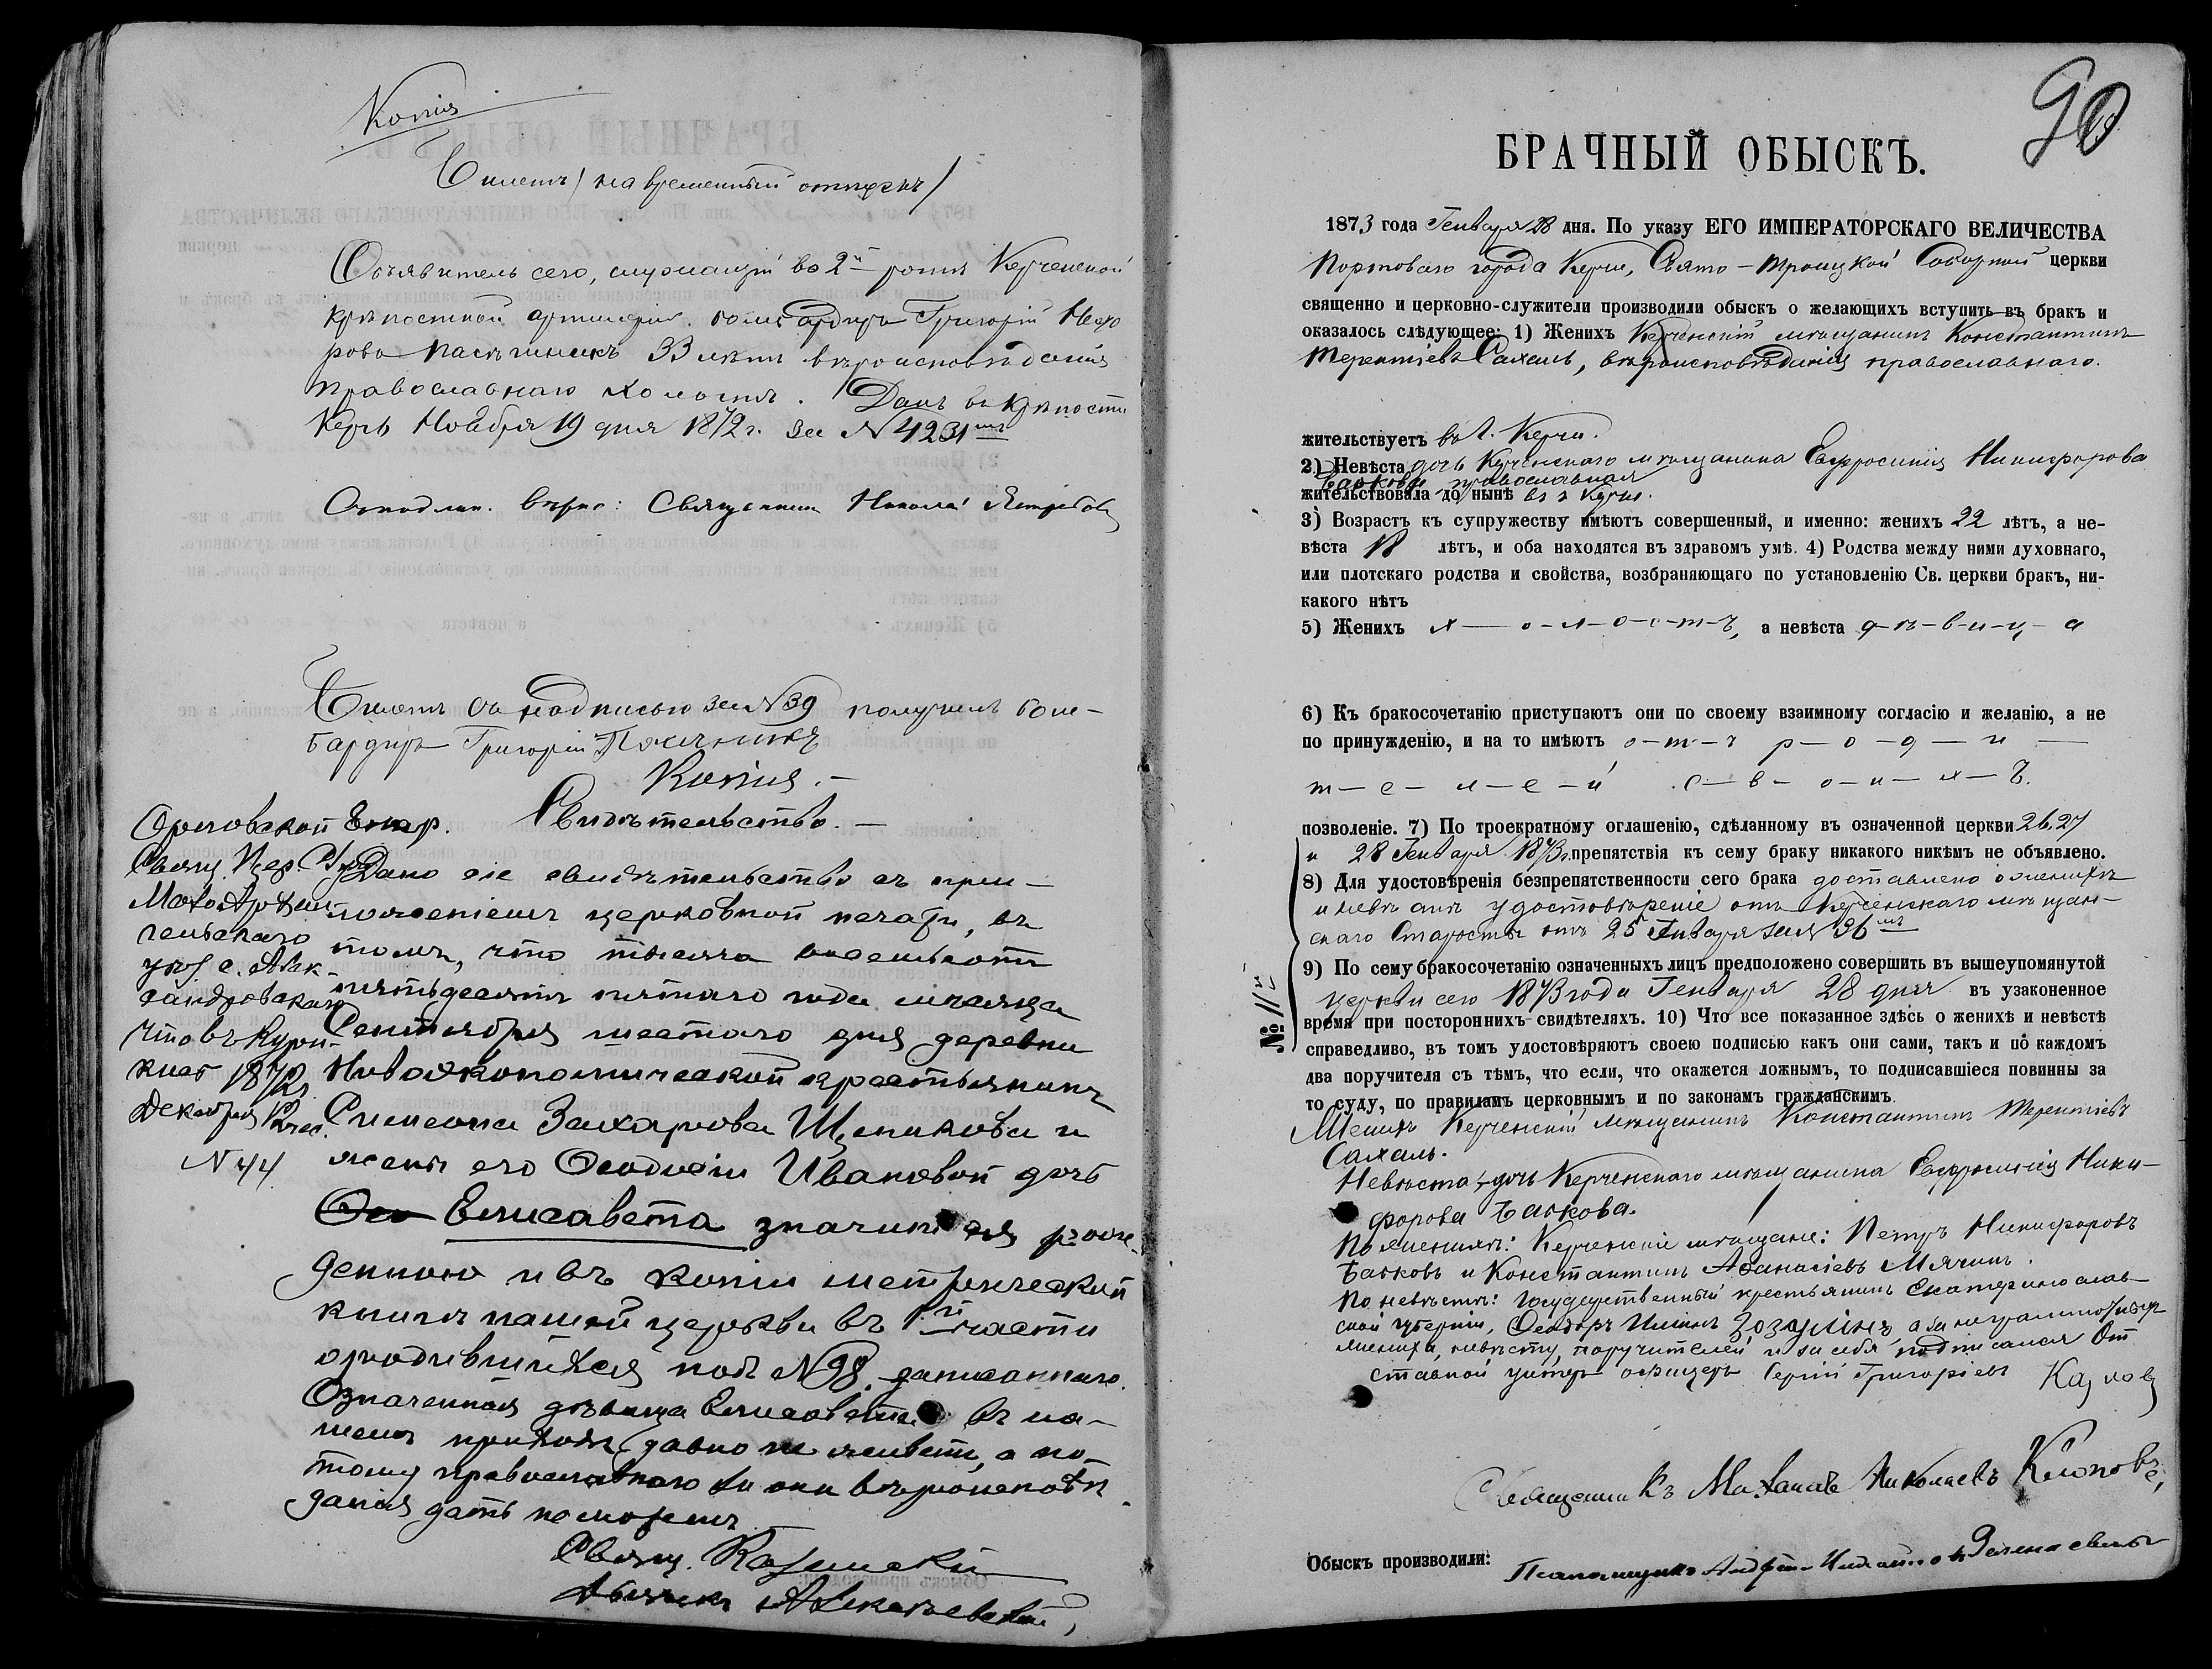 Копія
Билетъ / на временный отпускъ /
Объявитель сего, служащій во 2й ротѣ Керченской
крѣпостной артилеріи бомбардиръ Григорій
Пасѣчникъ 33 лѣтъ вѣроисповѣданія
православнаго холостъ. Данъ въ крѣпости
Керчь Ноября 19 дня 1872 г. за № 4231мъ
Съ подлин. вѣрно: Священникъ Николай
Билетъ съ надписью за № 39 получилъ бом-
бардиръ Григорій Пасѣчникъ
Копия.
Свидѣтельство.
Дано сіе свидѣтельство съ при-
ложеніемъ церковной печати, въ
томъ, что тысяча восемьсотъ
пятьдесятъ пятаго года мѣсяца
Сентября шестаго дня деревни
Новоэкономической крестьянина
Симеона Захарова Щеникова и
жены его Ѳеодосіи Ивановой дочь
Елисавета значится рож-
денною и въ копіи метрической
книги нашей церкви въ 1й части
о родившихся подъ № 98 записанною.
Означенная дѣвица Елисавета въ на-
шемъ приходѣ давно не живетъ, а по-
тому православнаго ли она вѣроисповѣ-
данія дать не можемъ
Свящ.
Дьячекъ
Свящ. Цер.
чельскаго
уѣз. с. Алек-
сандровскаго
что въ
1872 г.
Декабря
N 44
90
БРАЧНЫЙ ОБЫСКЪ.
1873 года Генваря 28 дня. По указу ЕГО ИМПЕРАТОРСКАГО ВЕЛИЧЕСТВА
Портоваго города Керчи, Свято-Троицкой Соборной церкви
священно и церковно-служители производили обыскъ о желающихъ вступить въ бракъ и
оказалось слѣдующее: 1) Женихъ Керченскій мѣщанинъ Константинъ
Терентіевъ Сахаль, вѣроисповѣданія православнаго.
жительствуетъ въ г. Керчи.
2) Невѣста дочь Керченскаго мѣщанина Евфросинія Никифорова
Баркова православная
жительствовала до нынѣ въ г. Керчи.
3) Возрастъ къ супружеству имѣютъ совершенный, и именно: женихъ 22 лѣтъ, а не-
вѣста 18 лѣтъ, и оба находятся въ здравомъ умѣ. 4) Родства между ними духовнаго,
или плотскаго родства и свойства, возбраняющаго по установленію Св. церкви бракъ, ни-
какого нѣтъ
5) Женихъ х-о-л-о-с-т-ъ, а невѣста д-ѣ-в-и-ц-а
6) Къ бракосочетанію приступаютъ они по своему взаимному согласію и желанію, а не
по принужденію, и на то имѣютъ о-т-ъ р-о-д-и-
т-е-л-е-й с-в-о-и-х-ъ.
позволеніе. 7) По троекратному оглашенію, сдѣланному въ означенной церкви 26, 27
и 28 Генваря 1873 г. препятствія къ сему браку никакого никѣмъ не объявлено.
8) Для удостовѣренія безпрепятственности сего брака доставлено о женихѣ
и невѣстѣ удостовѣреніе отъ Керченскаго мѣщан-
скаго Старосты отъ 25 Генваря за № 36мъ
9) По сему бракосочетанію означенныхъ лицъ предположено совершить въ вышеупомянутой
церкви сего 1873 года Генваря 28 дня въ узаконенное
время при постороннихъ свидѣтеляхъ. 10) Что все показанное здѣсь о женихѣ и невѣстѣ
справедливо, въ томъ удостовѣряютъ своею подписью какъ они сами, такъ и по каждомъ
два поручителя съ тѣмъ, что если, что окажется ложнымъ, то подписавшіеся повинны за
то суду, по правиламъ церковнымъ и по законамъ гражданскимъ.
№ 11й
Женихъ Керченскій мѣщанинъ Константинъ Терентіевъ
Сахаль.
Невѣста, дочь Керченскаго мѣщанина Евфросинія Ники-
форова Баркова.
По женихѣ: Керченскіе мѣщане: Петръ Никифоровъ
Барковъ и Константинъ Аѳанасіевъ Мячинъ.
По невѣстѣ: Государственный крестьянинъ Екатеринослав-
ской губерніи, Ѳеодоръ Ильинъ а за неграмотныхъ
жениха, невѣсту, поручителей и за себя подписался От
ставной унтеръ офицеръ Сергій Григоріевъ
Священникъ Михаилъ Николаевъ
Обыскъ производили: Псаломщикъ Андрей